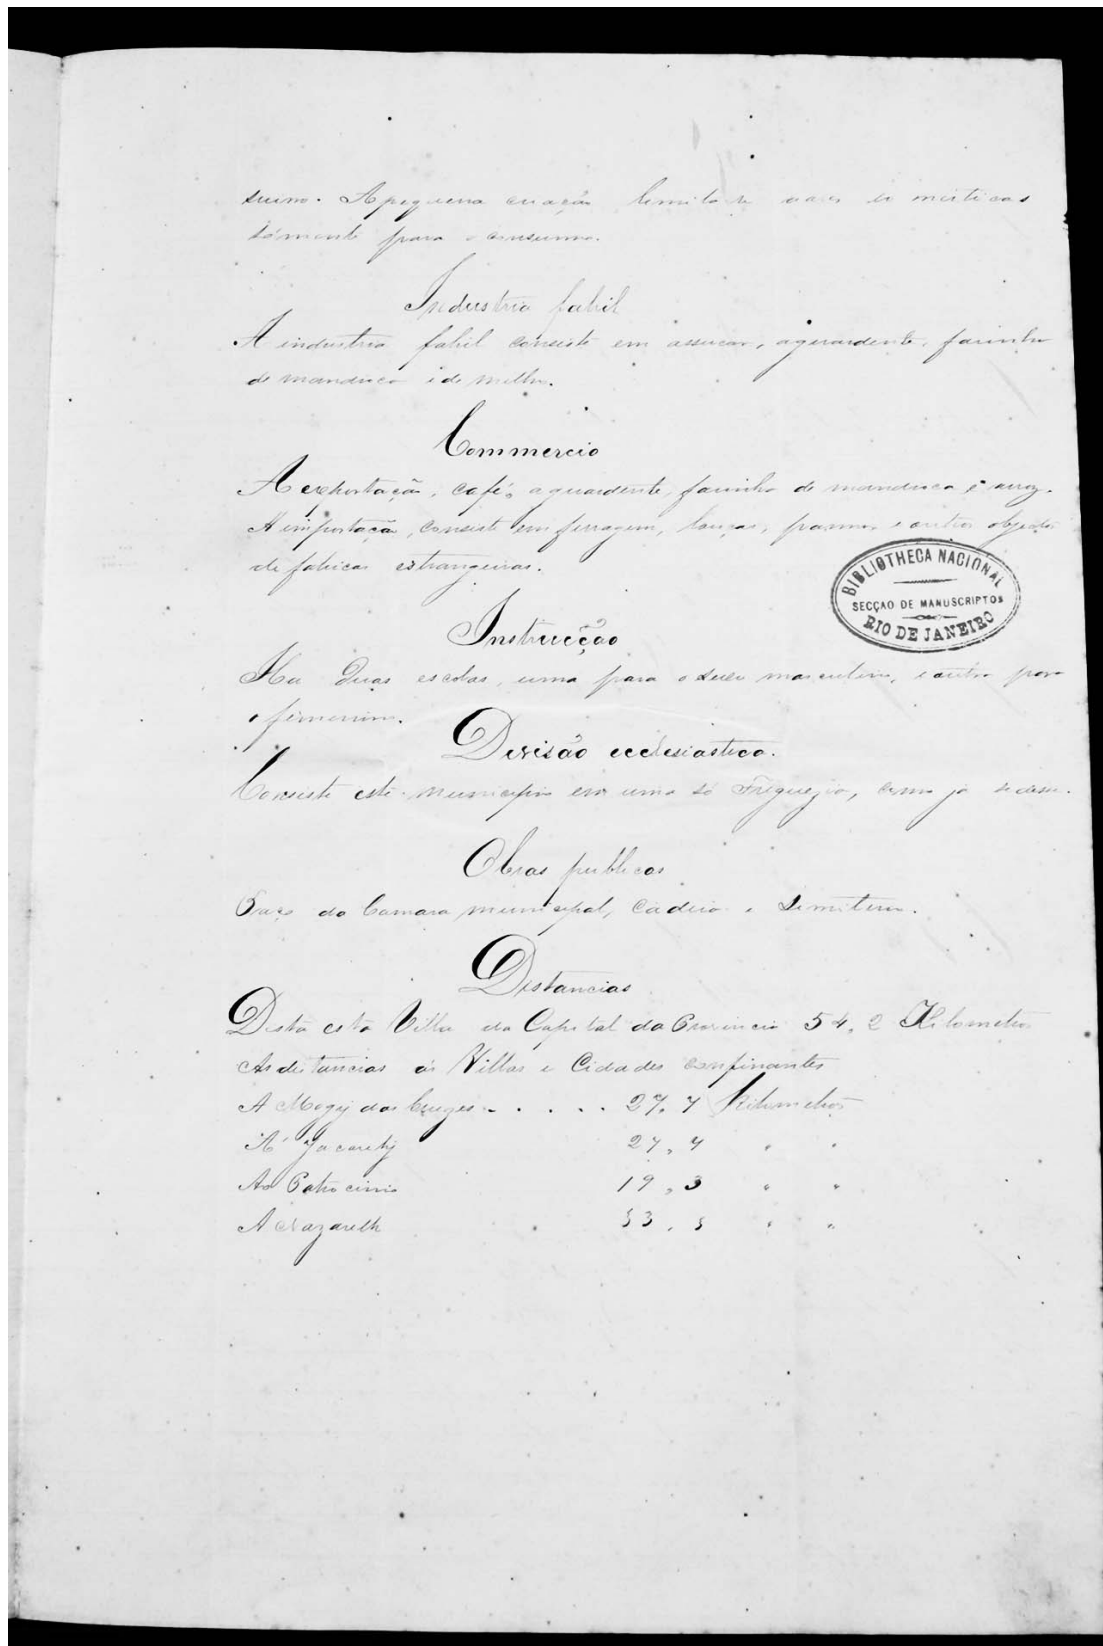 suino. A pequena criação limita-se a aves domesticas
sómente para o consumo.
Industria fabril
A industria fabril consiste em assucar, aguardente, farinha
de mandioca e de milho.
Commercio
A exportação, café, aguardente, farinha de mandioca e arroz.
A importação, consiste em ferragem, louças, pannos e outros objectos
de fabricas estrangeiras.
BIBLIOTHECA NACIONAL
SECÇÃO DE MANUSCRIPTOS
RIO DE JANEIRO
Instrucção
Ha duas escolas, uma para o sexo masculino, e outra para
o femenino.
Divisão ecclesiastica.
Consiste este municipio em uma só Freguezia, como já se disse.
Obras publicas
Paço da Camara municipal, Cadeia e Semiterio.
Distancias
Dista esta Villa da Capital da Provincia 54,2 Kilometros
As distancias ás Villas e Cidades confinantes
A Mogy das Cruzes . . . . . 27,7 Kilometros
A' Jacarehy 27,7 " "
Ao Patrocinio 19,3 " "
A Nazareth 33,5 " "